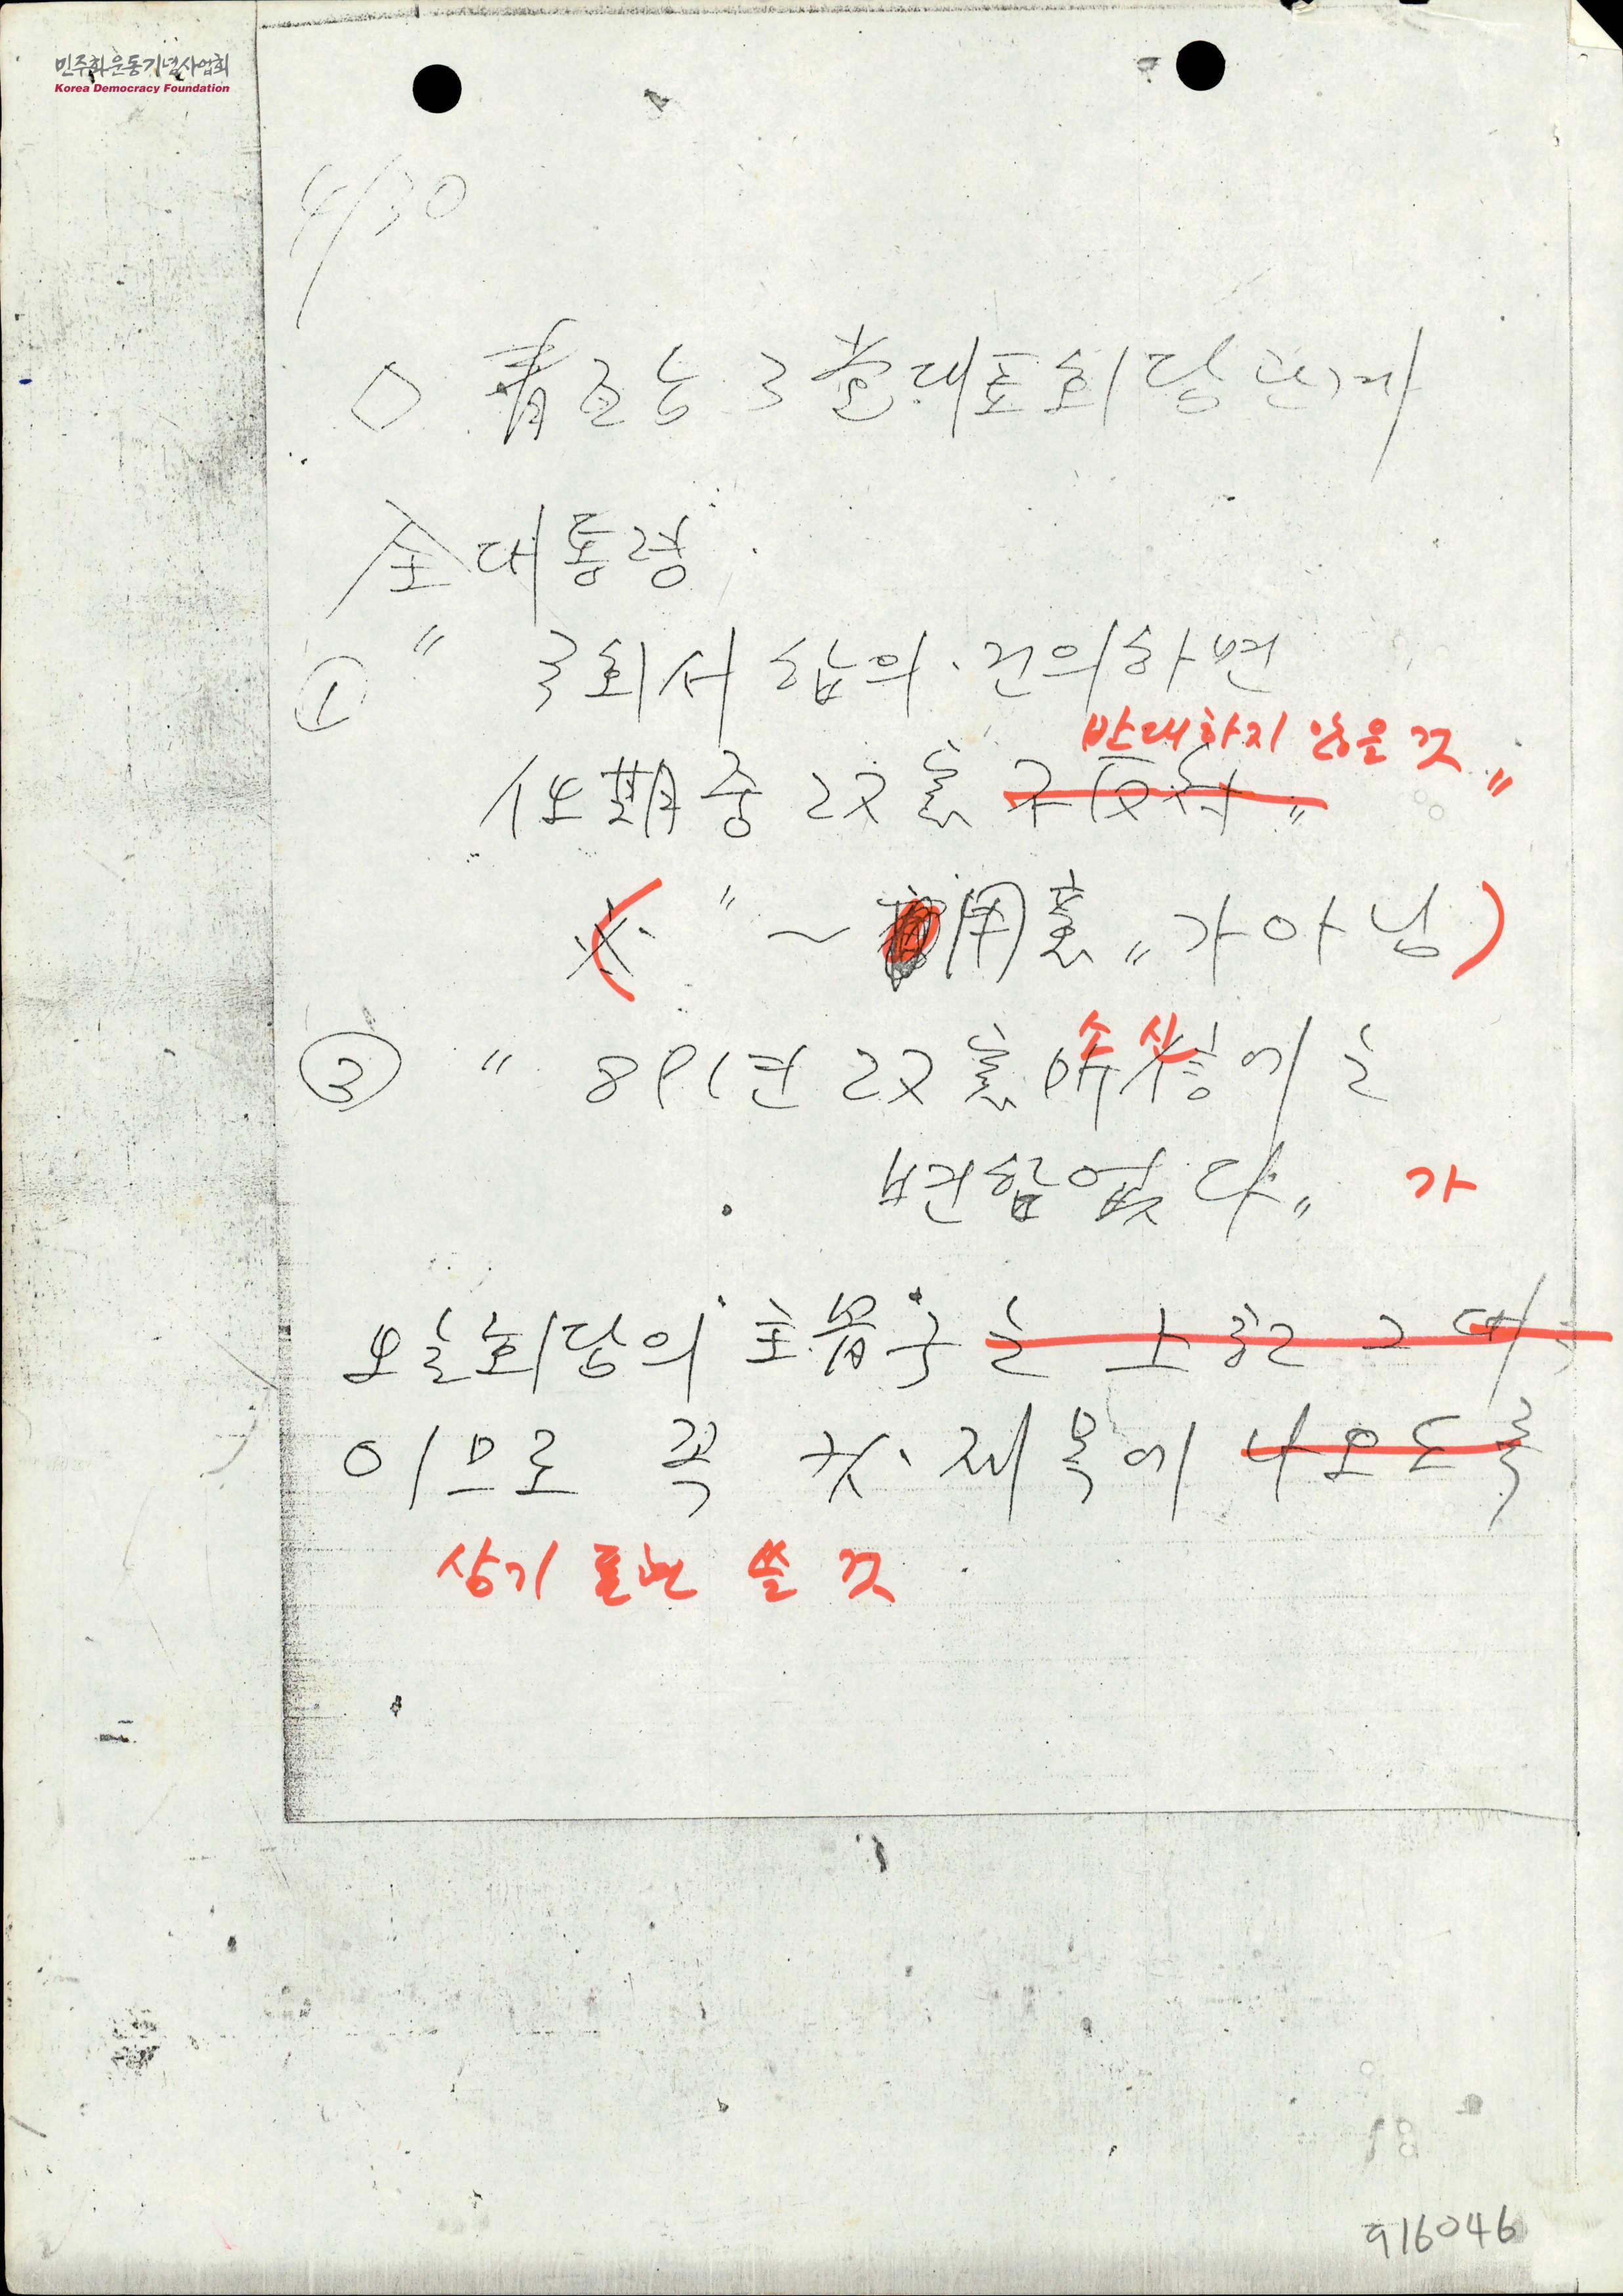 민주화운동기념사업회
Korea Democracy Foundation
4/30
青瓦台 3党대표회담
全대통령
① " 국회서 합의·건의하면
반대하지 않을 것 "
任期중 改憲 不反対 "
※ ( " ~ 用意 " 가 아님 )
③ " 89년 改憲 소신
所信에는
변함없다 " 가
오늘회담의 主骨子는
이므로 꼭 컷·제목에 나오도록
상기 표현 쓸 것
916046